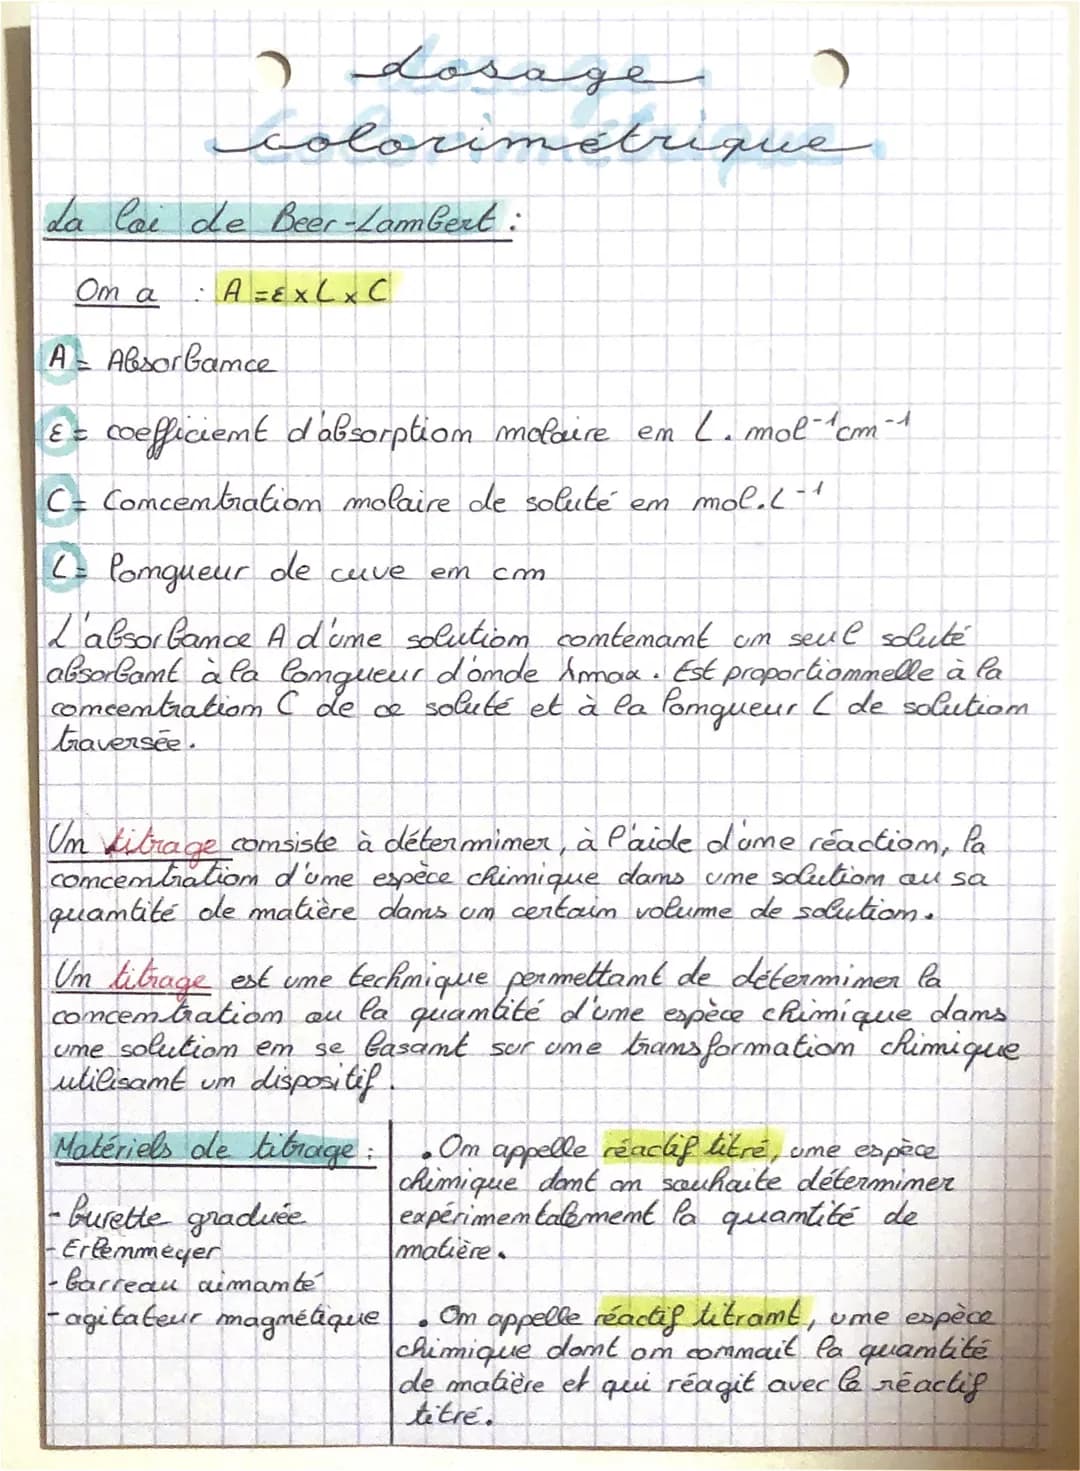 dosage
colorimétrique
La loi de Beer-Lambert :
On a : A = ε x L x C
A = Absorbance
ε = coefficient d'absorption molaire en L. mol⁻¹cm⁻¹
C = Concentration molaire de soluté en mol.L⁻¹
L = longueur de cuve en cm
L'absorbance A d'une solution contenant un seul soluté
absorbant à la longueur d'onde λmax. Est proportionnelle à la
concentration C de ce soluté et à la longueur L de solution
traversée.
Un titrage consiste à déterminer, à l'aide d'une réaction, la
concentration d'une espèce chimique dans une solution ou sa
quantité de matière dans un certain volume de solution.
Un titrage est une technique permettant de déterminer la
concentration ou la quantité d'une espèce chimique dans
une solution en se basant sur une transformation chimique
utilisant un dispositif.
Matériels de titrage :
- burette graduée
- Erlenmeyer
- barreau aimanté
- agitateur magnétique
. On appelle réactif titré, une espèce
chimique dont on souhaite déterminer
expérimentalement la quantité de
matière.
. On appelle réactif titrant, une espèce
chimique dont on connait la quantité
de matière et qui réagit avec le réactif
titré.